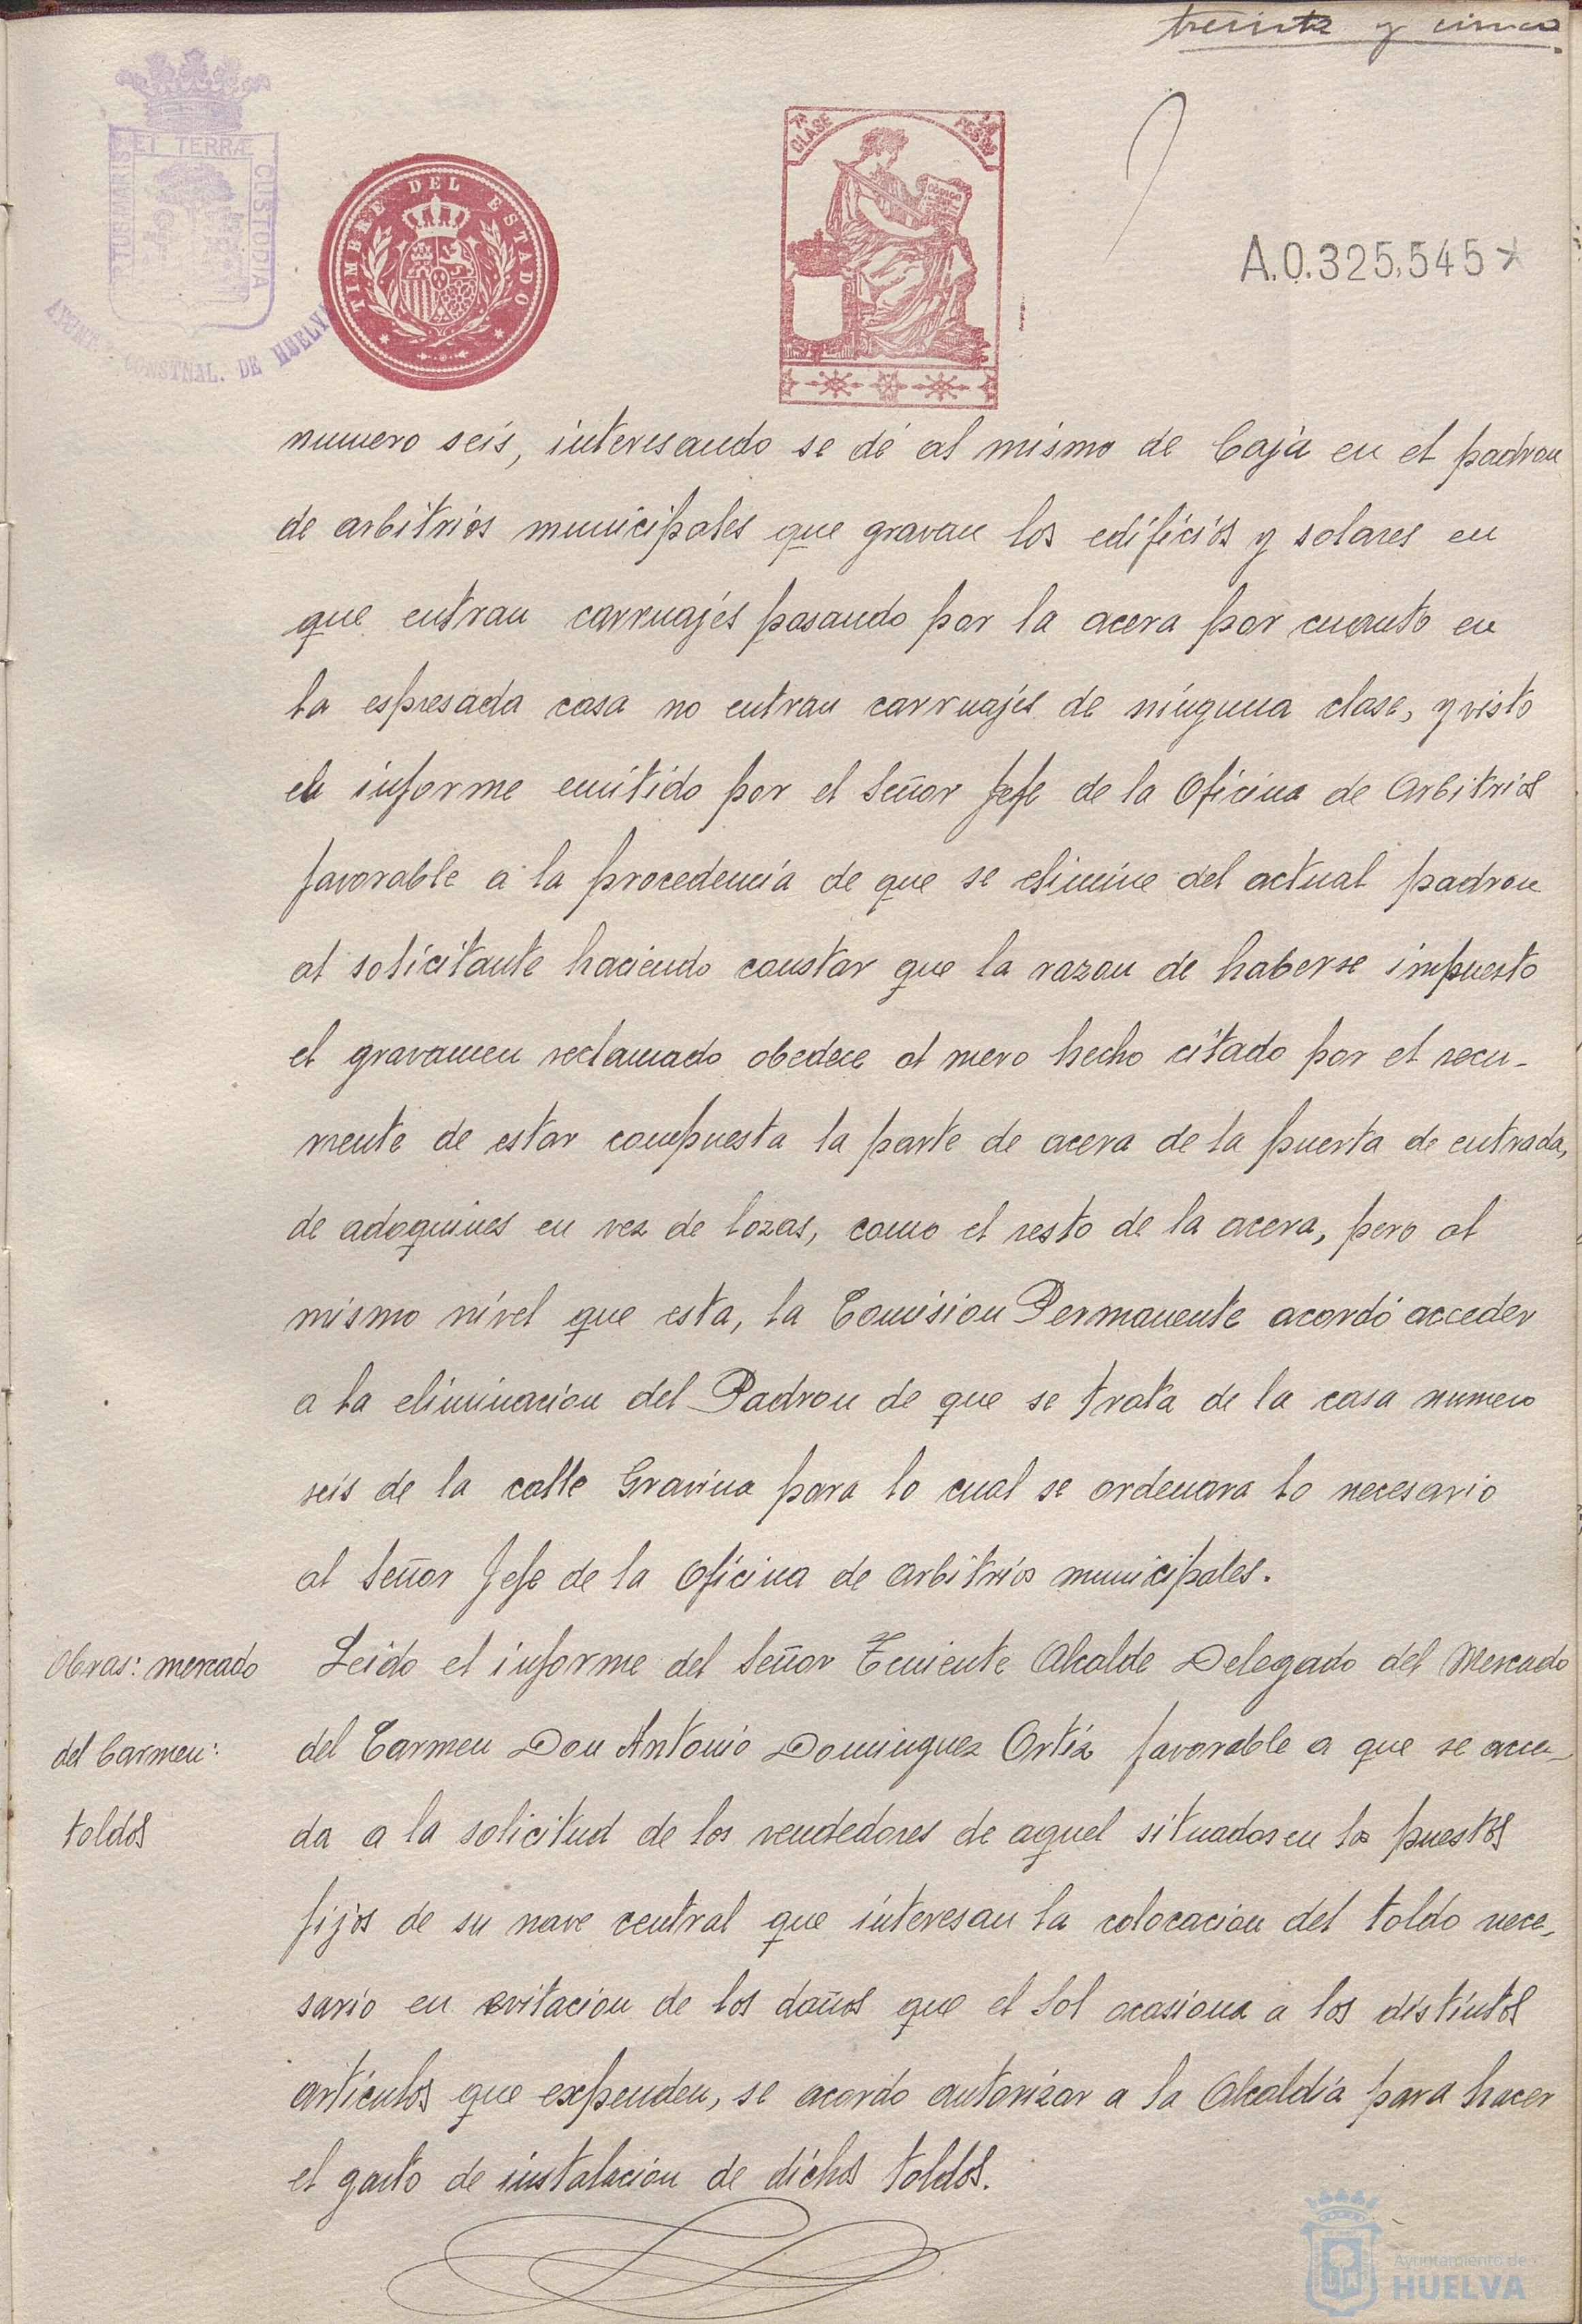 treinta y cinco
PORTUS MARIS ET TERRÆ CUSTODIA
CONSTNAL. DE HUELVA
TIMBRE DEL ESTADO
7ª CLASE
A.0.325,545*
numero seis, interesando se dé al mismo de baja en el padron
de arbitrios municipales que gravan los edificios y solares en
que entran carruajes pasando por la acera por cuanto en
la espresada casa no entran carruajes de ninguna clase, y visto
el informe emitido por el Señor Jefe de la Oficina de Arbitrios
favorable a la procedencia de que se elimine del actual padron
al solicitante haciendo constar que la razon de haberse impuesto
el gravamen reclamado obedece al mero hecho citado por el recu-
rrente de estar compuesta la parte de acera de la puerta de entrada,
de adoquines en vez de lozas, como el resto de la acera, pero al
mismo nivel que esta, la Comision Permanente acordó acceder
a la eliminacion del Padron de que se trata de la casa numero
seis de la calle Gravina para lo cual se ordenara lo necesario
al Señor Jefe de la Oficina de arbitrios municipales.
Obras: mercado
del Carmen:
toldos
Leido el informe del Señor Teniente Alcalde Delegado del Mercado
del Carmen Don Antonio Dominguez Ortiz favorable a que se acce-
da a la solicitud de los vendedores de aquel situados en los puestos
fijos de su nave central que interesan la colocacion del toldo nece-
sario en evitacion de los daños que el Sol ocasiona a los distintos
articulos que expenden, se acordo autorizar a la Alcaldia para hacer
el gasto de instalacion de dichos toldos.
Ayuntamiento de
HUELVA